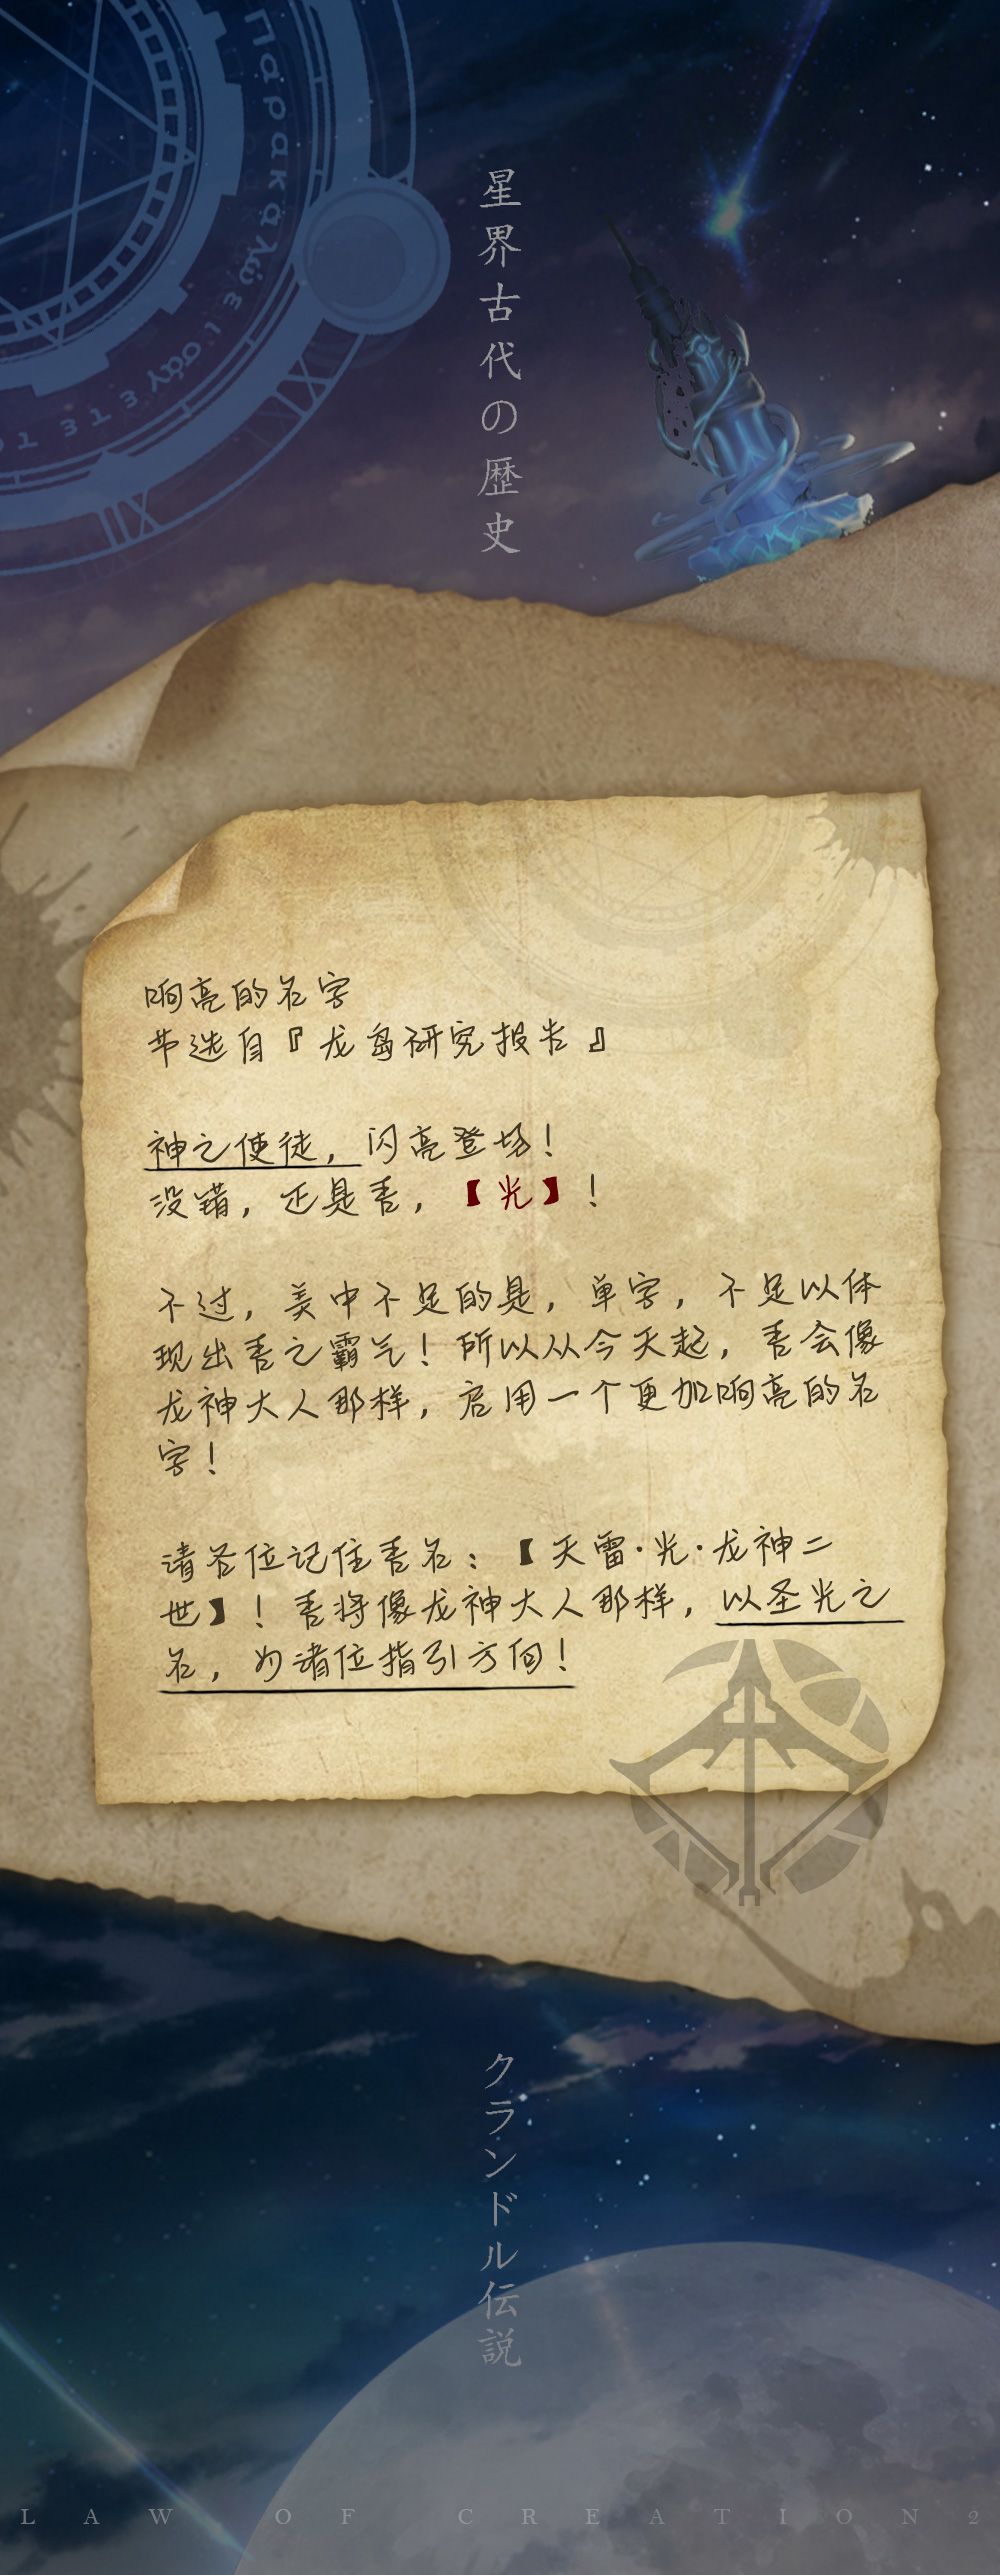 星界古代の歴史
响亮的名字
节选自『龙岛研究报告』
神之使徒，闪亮登场！
没错，还是吾，【光】！
不过，美中不足的是，单字，不足以体
现出吾之霸气！所以从今天起，吾会像
龙神大人那样，启用一个更加响亮的名
字！
请各位记住吾名：【天雷·光·龙神二
世】！吾将像龙神大人那样，以圣光之
名，为诸位指引方向！
クランドル伝説
LAW OF CREATION2